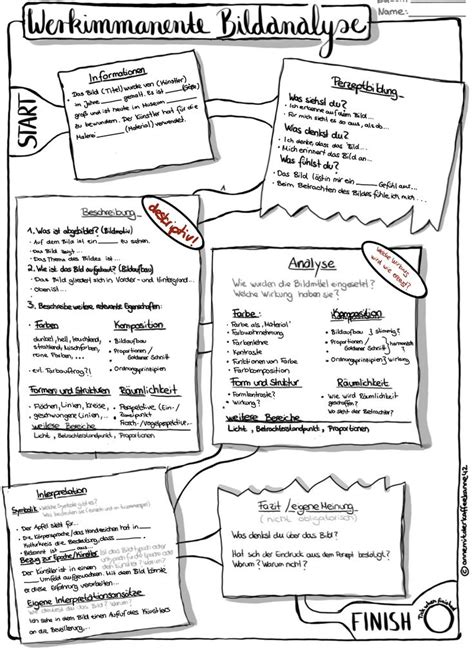 Name:
Werkimmanente Bildanalyse
START
Informationen
Das Bild (Titel) wurde von (Künstler)
in Jahre ___ gemalt. Es ist ___ (Größe)
groß und ist heute im Museum ___
zu bewundern. Der Künstler hat für die
Malerei ___ (Material) verwendet.
Perzeptbildung
Was siehst du?
• Ich erkenne auf dem Bild...
• Für mich sieht es so aus, als ob...
Was denkst du?
• Ich denke, dass das Bild...
• Mich erinnert das Bild an...
Was fühlst du?
• Das Bild löst in mir ein ___ Gefühl aus...
• Beim Betrachten des Bildes fühle ich mich...
Beschreibung
deskriptiv!
1. Was ist abgebildet? (Bildmotiv)
• Auf dem Bild ist ein ___ zu sehen.
• Das Bild zeigt...
• Das Thema des Bildes ist...
2. Wie ist das Bild aufgebaut? (Bildaufbau)
• Das Bild gliedert sich in Vorder- und Hintergrund...
• Oben ist...
3. Beschreibe weitere relevante Eigenschaften:
• Farben
dunkel, hell, leuchtend,
reine Farben, ...
• evtl. Farbauftrag?!
Komposition
• Bildaufbau
• Proportionen /
Goldener Schnitt
• Ordnungsprinzipien
Formen und Strukturen
• Flächen, Linien, Kreise, ..
geschwungene Linien, ...
Räumlichkeit
• Perspektive (Ein-/
Frosch-/Vogelperspektive...
weitere Bereiche
Licht, Betrachterstandpunkt, Proportionen
Analyse
Welche Wirkung
wird wie erzeugt?
Wie wurden die Bildmittel eingesetzt?
Welche Wirkung haben sie?
Farbe:
• Farbe als „Material“
• Farbwahrnehmung
• Farbenlehre
• Kontraste
• Funktionen von Farbe
• Farbkomposition
Komposition
• Bildaufbau
• Proportionen /
Goldener Schnitt
• Ordnungsprinzipien
Wirkung
Form und Struktur
• Formkontraste?
• Wirkung?
Räumlichkeit
• Wie wird Räumlichkeit
geschaffen?
Wo steht der Betrachter?
weitere Bereiche
Licht, Betrachterstandpunkt, Proportionen
Interpretation
Symbolik:
• Der Apfel steht für...
• Die Körpersprache/das Handzeichen hat in ___
Kulturkreis die Bedeutung, dass ___.
• Bekannt ist ___ aus...
Bezug zur Epoche/Künstler
Der Künstler ist in einem ___
Umfeld aufgewachsen. Mit dem Bild könnte
er diese Erfahrung verarbeiten...
Eigene Interpretationsansätze
Ich sehe in dem Bild einen Aufruf des Künstlers
an die Bevölkerung...
Fazit / eigene Meinung
(nicht obligatorisch)
Was denkst du über das Bild?
Hat sich der Eindruck aus dem Perzept bestätigt?
Warum? Warum nicht?
FINISH
Tick when finished
© annemitderkaffeekanne42